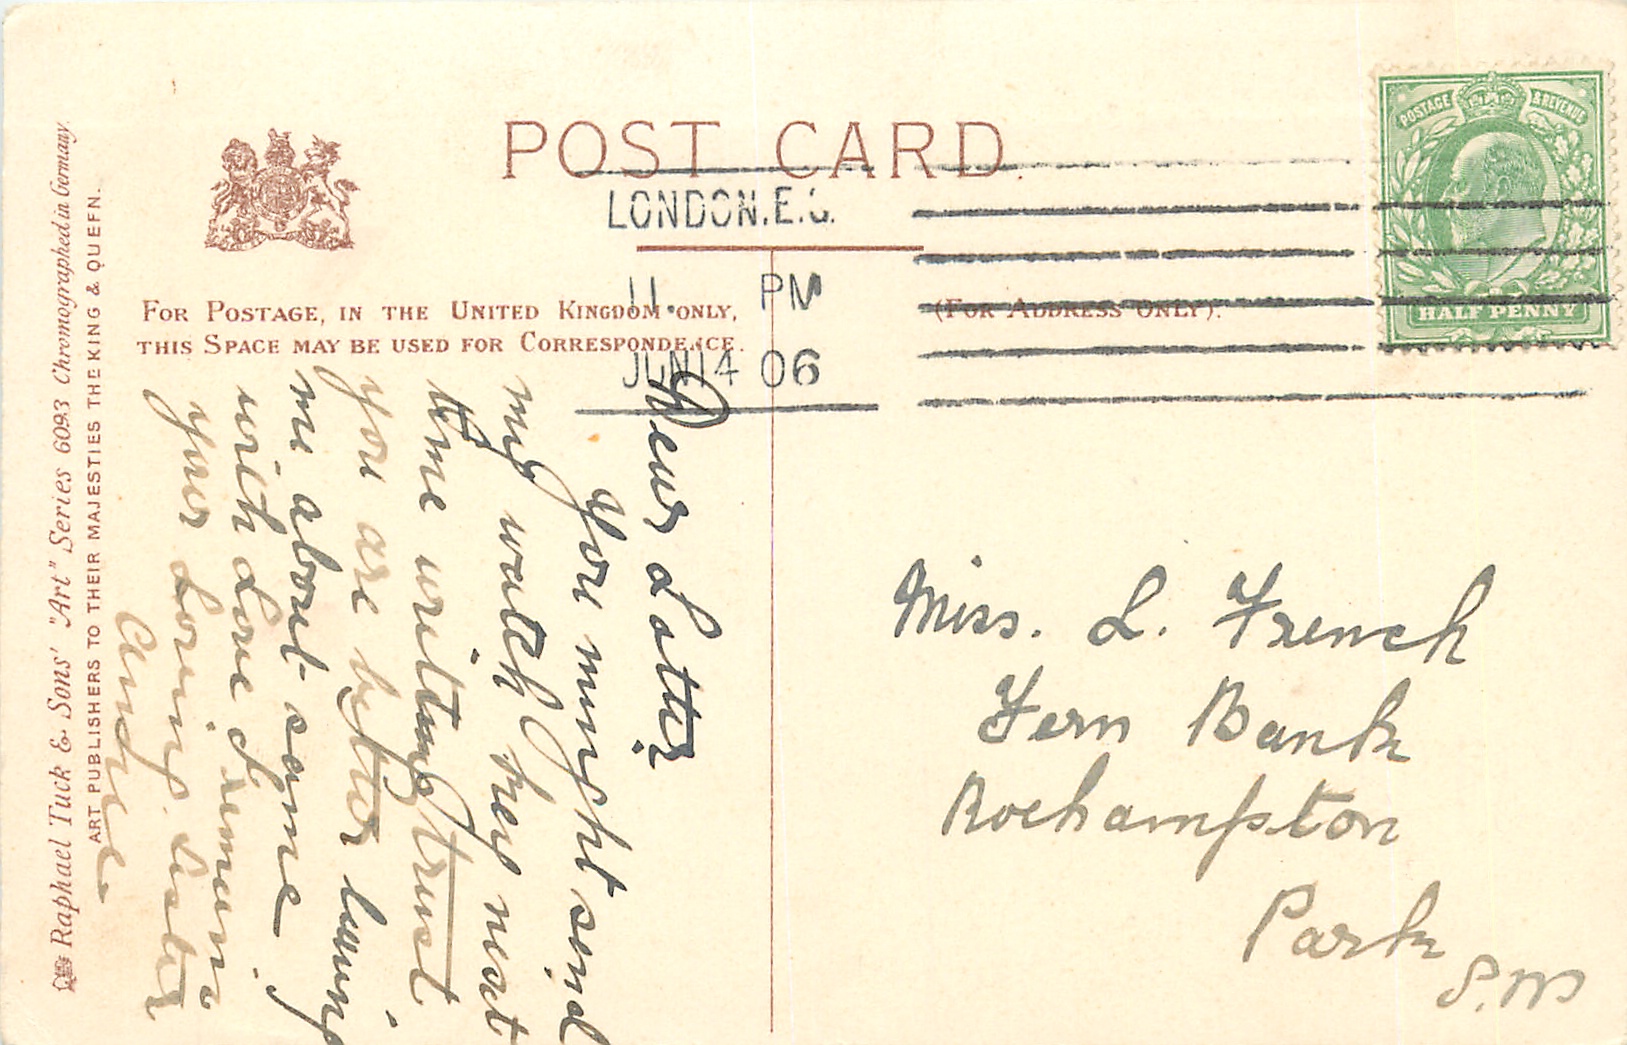 POST CARD.
POSTAGE & REVENUE
HALF PENNY
LONDON.E.C.
11 PM
JUN 14 06
FOR POSTAGE, IN THE UNITED KINGDOM ONLY,
THIS SPACE MAY BE USED FOR CORRESPONDENCE.
(FOR ADDRESS ONLY).
Raphael Tuck & Sons' "Art" Series 6093 Chromographed in Germany.
ART PUBLISHERS TO THEIR MAJESTIES THE KING & QUEEN.
Dear Lottie
You might send
my watch key next
time writing trust
you are better
me about same
with love I remain
your Loving Sister
Miss. L. French
Fern Bank
Roehampton
Park
S.W